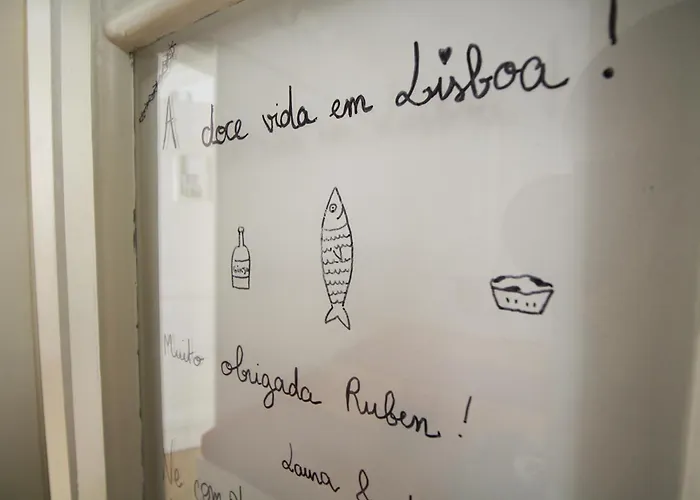 A doce vida em Lisboa !
Muito obrigada Ruben !
Laura &